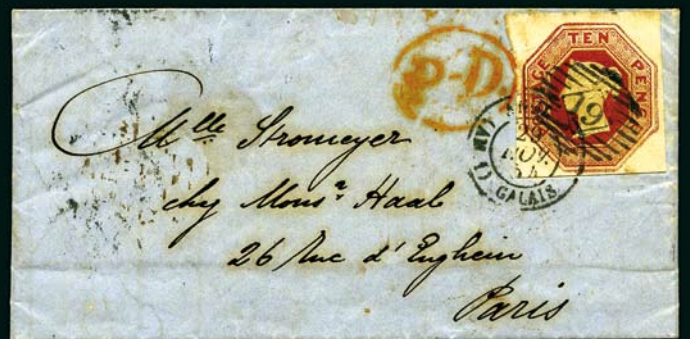 P-D.
TEN PENCE
19
29
NOV.
54
CALAIS
Mlle Stromeyer
chz Monsr Haab
26 Rue d'Enghein
Paris